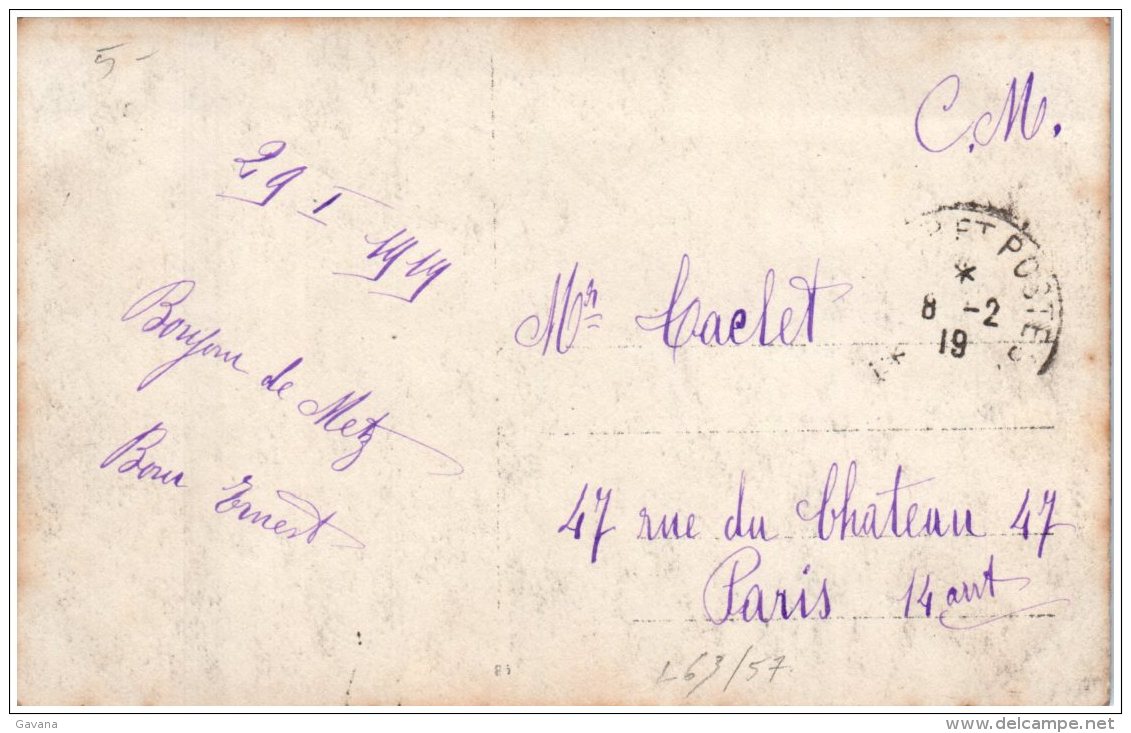 5-
C.M.
29 I 1919
Bonjour de Metz
Bour Ernest
ET POSTES
*
8 -2
19
Mr Caclet
47 rue du Chateau 47
Paris 14 arrt
L63/57.
Gavana
www.delcampe.net